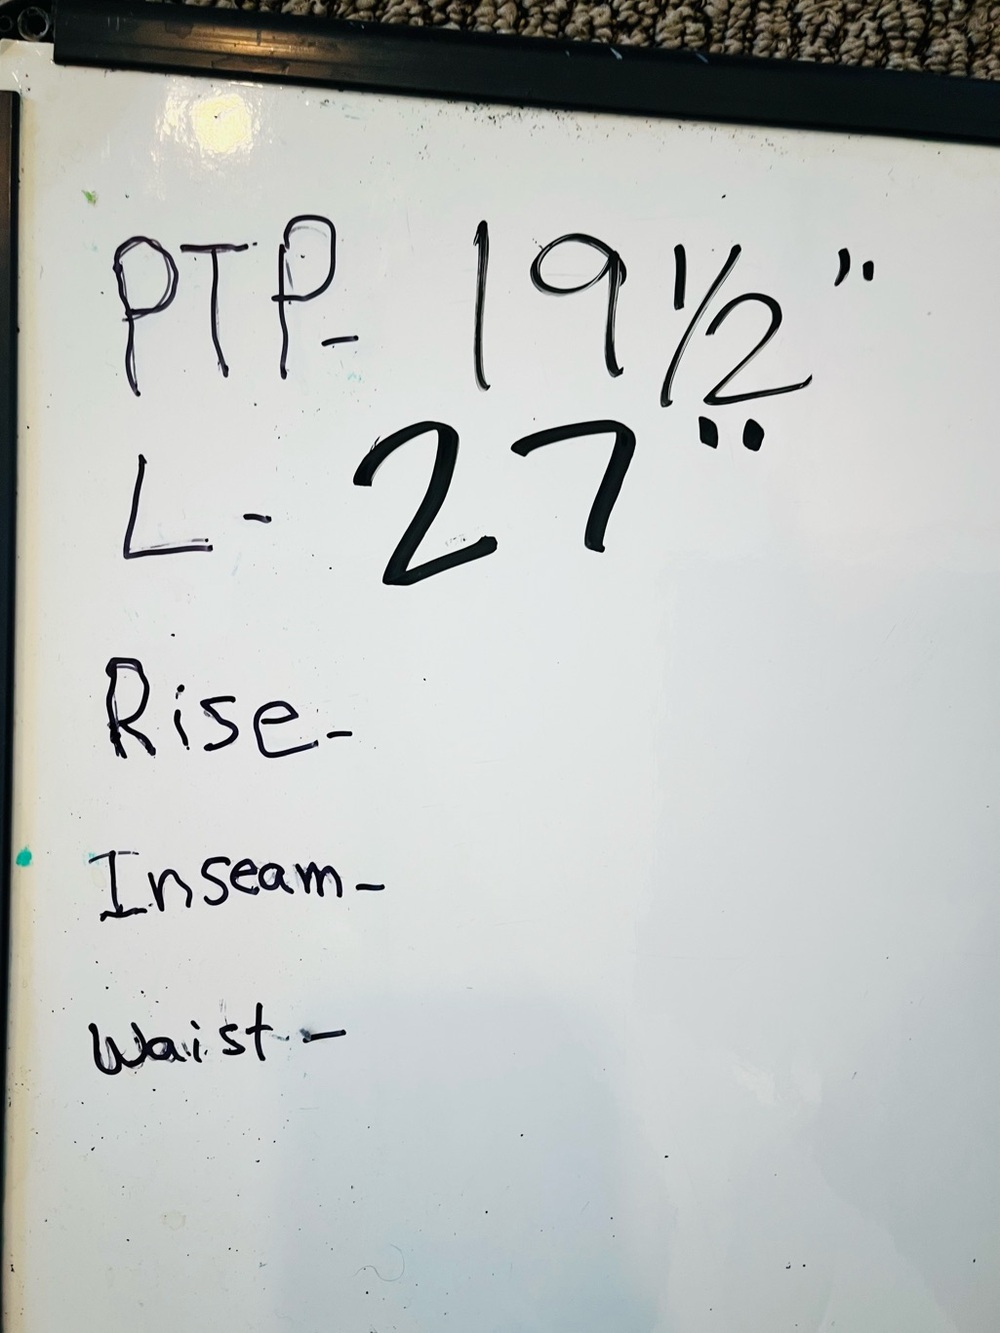 PTP- 19 1/2"
L- 27"
Rise-
Inseam-
Waist-